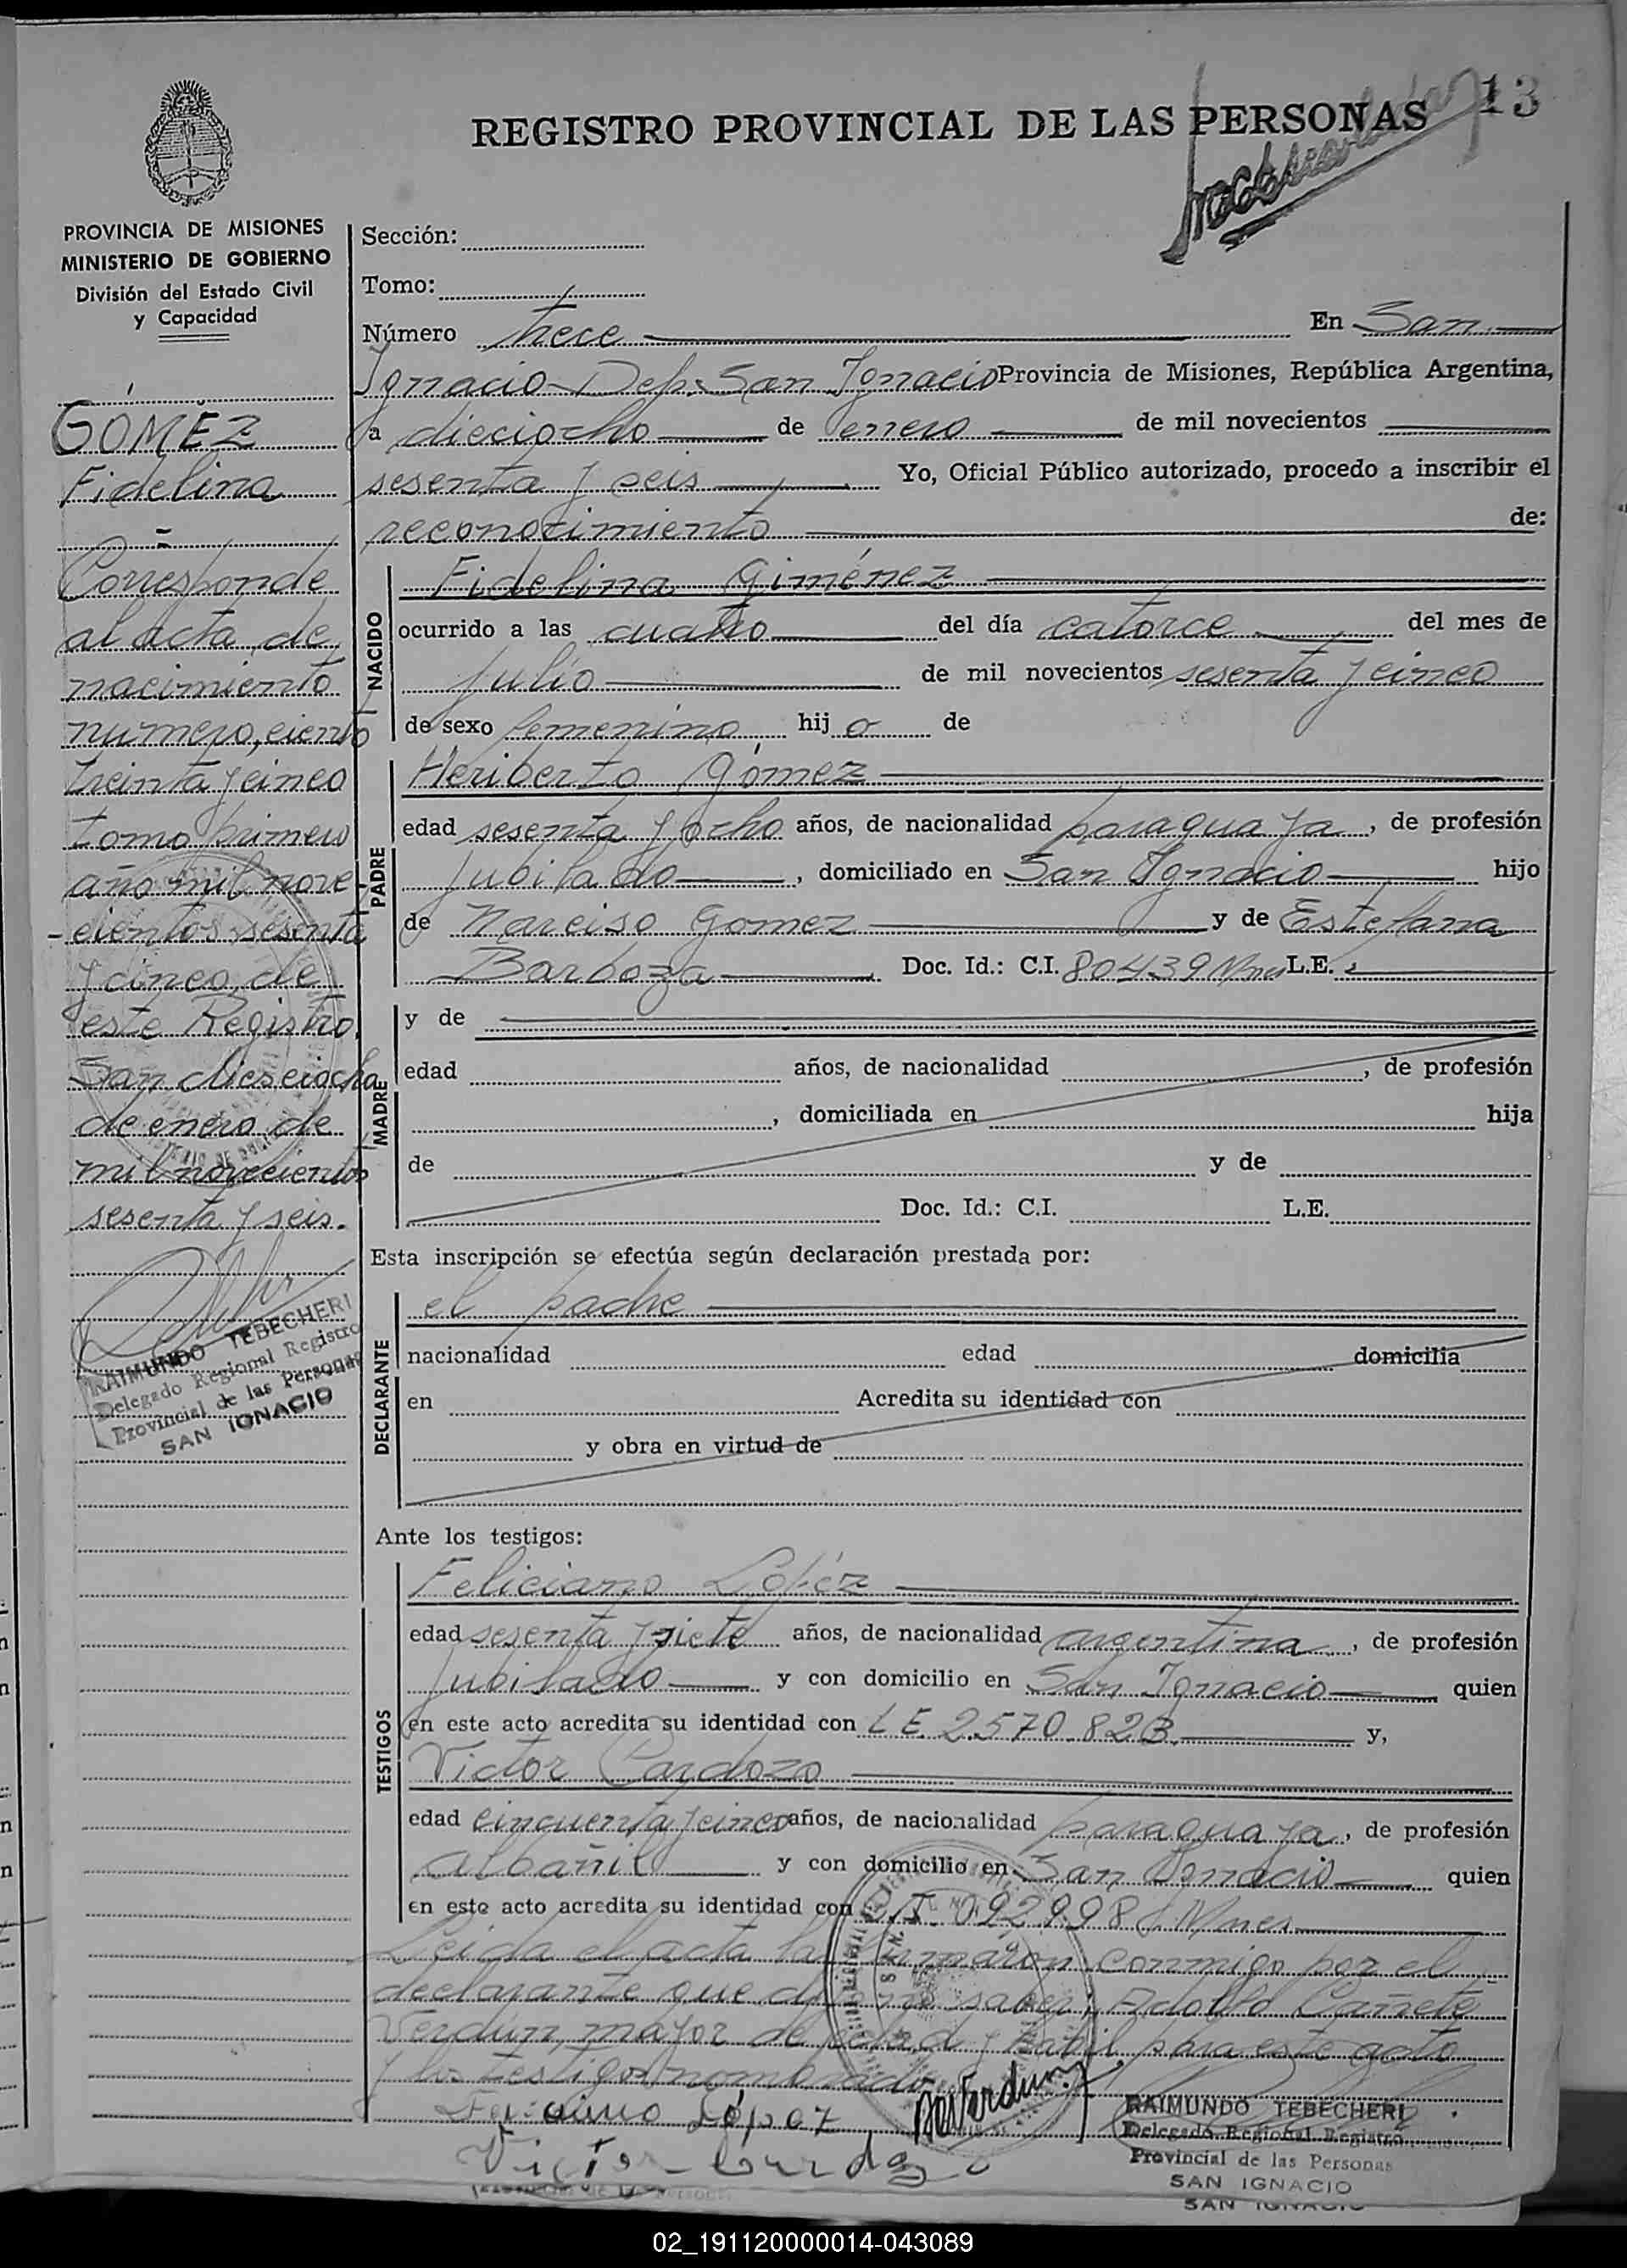 REGISTRO PROVINCIAL DE LAS PERSONAS 13
PROVINCIA DE MISIONES
MINISTERIO DE GOBIERNO
División del Estado Civil
y Capacidad
GÓMEZ
Fidelina
-
Corresponde
al acta de
nacimiento
numero, ciento
treinta y cinco
tomo primero
año mil nove
-cientos sesenta
y cinco, de
este Registro.
San
de enero de
mil novecientos
sesenta y seis.
RAIMUNDO TEBECHERI
Delegado Regional Registro
Provincial de las Personas
SAN IGNACIO
Sección:
Tomo:
Número trece En San
Ignacio Dep. San Ignacio Provincia de Misiones, República Argentina,
a dieciocho de enero de mil novecientos
sesenta y seis Yo, Oficial Público autorizado, procedo a inscribir el
reconocimiento de:
NACIDO
Fidelina Giménez
ocurrido a las cuatro del día catorce del mes de
julio de mil novecientos sesenta y cinco
de sexo femenino hij a de
PADRE
Heriberto Gómez
edad sesenta y ocho años, de nacionalidad paraguaya, de profesión
jubilado, domiciliado en San Ignacio hijo
de Narciso Gomez y de Estefana
Barboza Doc. Id.: C.I. 80439 Mnes L.E.
MADRE
y de
edad años, de nacionalidad , de profesión
, domiciliada en hija
de y de
Doc. Id.: C.I. L.E.
Esta inscripción se efectúa según declaración prestada por:
DECLARANTE
el padre
nacionalidad edad domicilia
en Acredita su identidad con
y obra en virtud de
Ante los testigos:
TESTIGOS
Feliciano López
edad sesenta y siete años, de nacionalidad argentina, de profesión
jubilado y con domicilio en San Ignacio quien
en este acto acredita su identidad con L E 2.570.823 y,
Victor Cardozo
edad cincuenta y cinco años, de nacionalidad paraguaya, de profesión
albañil y con domicilio en San Ignacio quien
en este acto acredita su identidad con C.I. 092.998 Mnes
Leida el acta la firmaron conmigo por el
declarante que dijo no saber, Adolfo Cañete
Verdun, mayor de edad y habil para este acto
y los testigos nombrados
López
Verdun
Victor
RAIMUNDO TEBECHERI
Delegado Regional Registro
Provincial de las Personas
SAN IGNACIO
SAN IGNACIO
02_191120000014-043089